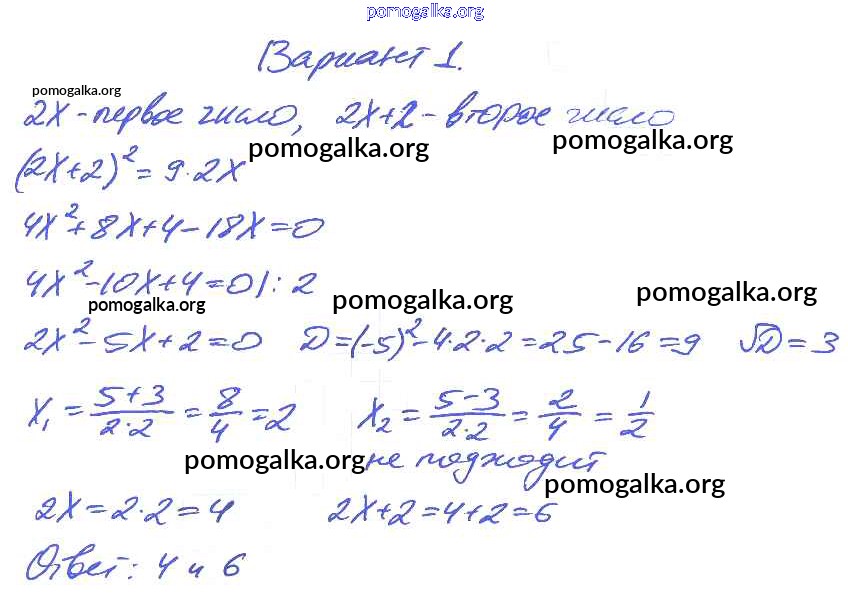 pomogalka.org
Вариант 1.
pomogalka.org
2х - первое число, 2х+2 - второе число
pomogalka.org pomogalka.org
(2х+2)² = 9·2х
4х²+8х+4-18х=0
4х²-10х+4=0 |: 2
pomogalka.org pomogalka.org pomogalka.org
2х²-5х+2=0 D=(-5)²-4·2·2=25-16=9 √D=3
х₁ = (5+3)/(2·2) = 8/4 = 2 х₂ = (5-3)/(2·2) = 2/4 = 1/2
pomogalka.org не подходит
pomogalka.org
2х=2·2=4 2х+2=4+2=6
Ответ: 4 и 6